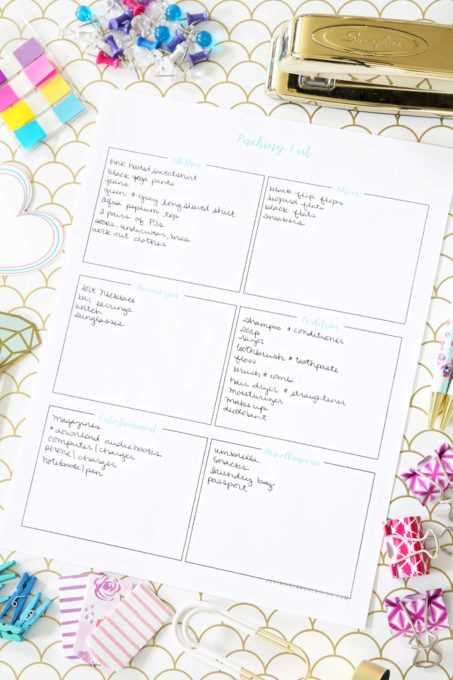 Packing List
Clothing
pink hooded sweatshirt
black yoga pants
jeans
green & gray long sleeved shirt
aqua peplum top
2 pairs of PJs
socks, underwear, bras
work out clothes
Shoes
black flip flops
leopard flats
black flats
sneakers
Accessories
necklace
earrings
watch
sunglasses
Toiletries
shampoo & conditioner
soap
razor
toothbrush & toothpaste
floss
brush & comb
hair dryer & straightener
moisturizer
makeup
deodorant
Entertainment
magazines
* download audiobooks
computer/charger
phone/charger
notebook/pen
Miscellaneous
umbrella
snacks
laundry bag
passport